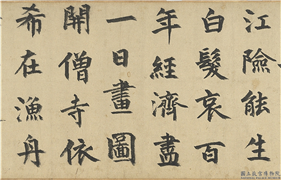 江險能生
白髮哀百
年經濟盡
一日畫圖
開僧寺依
希在漁舟
國立故宮博物院